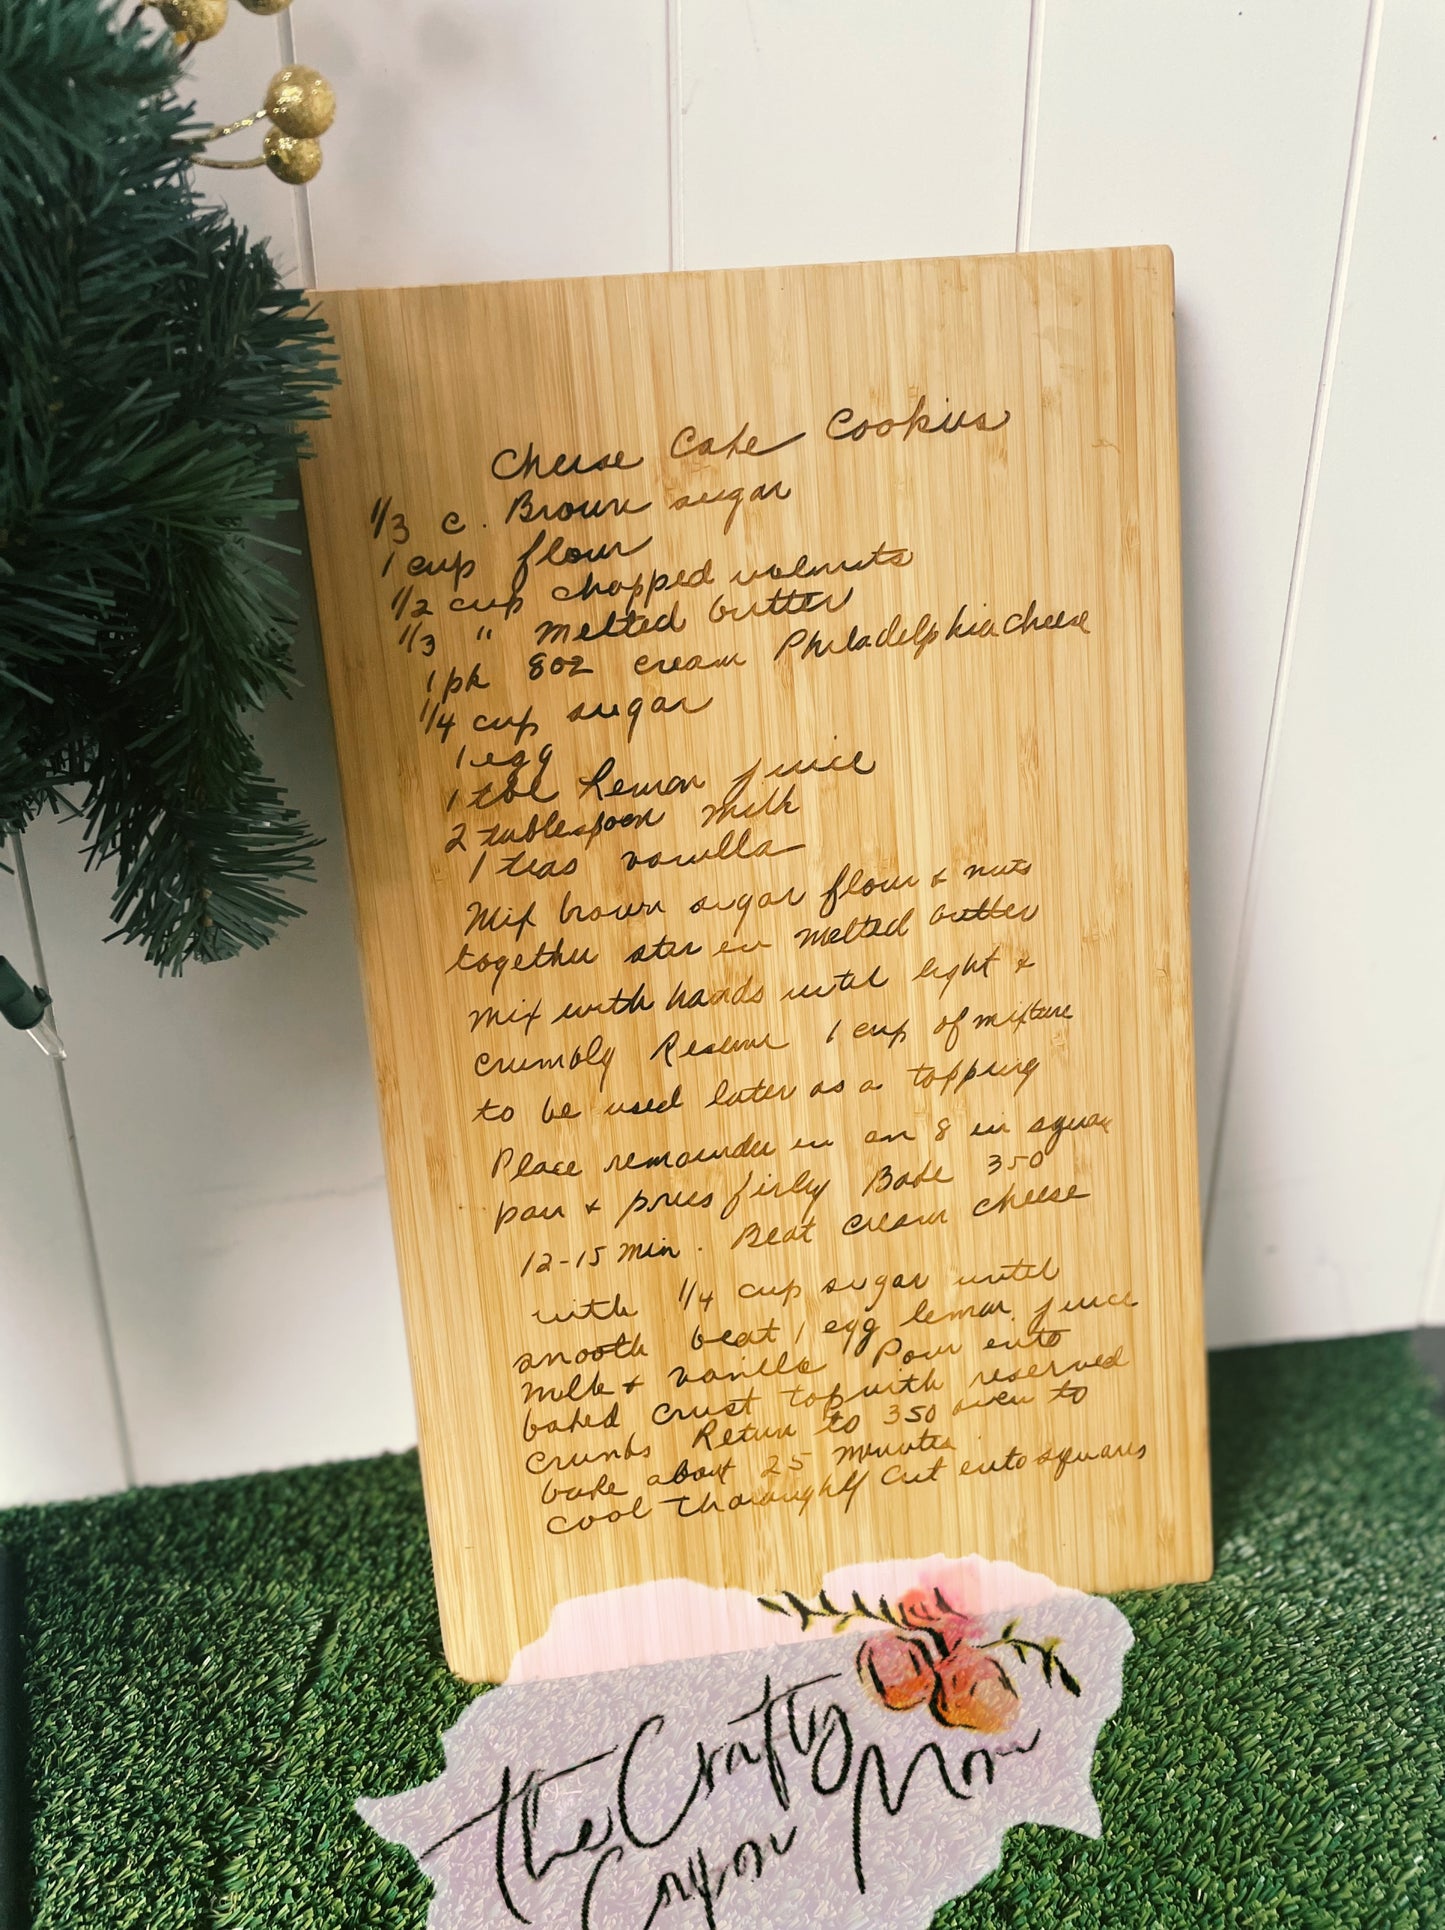 Cheese Cake Cookies
1/3 c. Brown sugar
1 cup flour
1/2 cup chopped walnuts
1/3 " melted butter
1 pk 8oz cream Philadelphia cheese
1/4 cup sugar
1 egg
1 tbl Lemon juice
2 tablespoon milk
1 teas vanilla
Mix brown sugar flour & nuts
together stir in melted butter
mix with hands until light &
crumbly Reserve 1 cup of mixture
to be used later as a topping
Place remainder in an 8 in square
pan & press firly Bake 350
12-15 min. Beat cream cheese
with 1/4 cup sugar until
smooth beat 1 egg lemon juice
milk & vanilla Pour into
baked crust top with reserved
crumbs Return to 350 oven to
bake about 25 minutes
cool thoroughly cut into squares
the Crafty
Crayon Mom